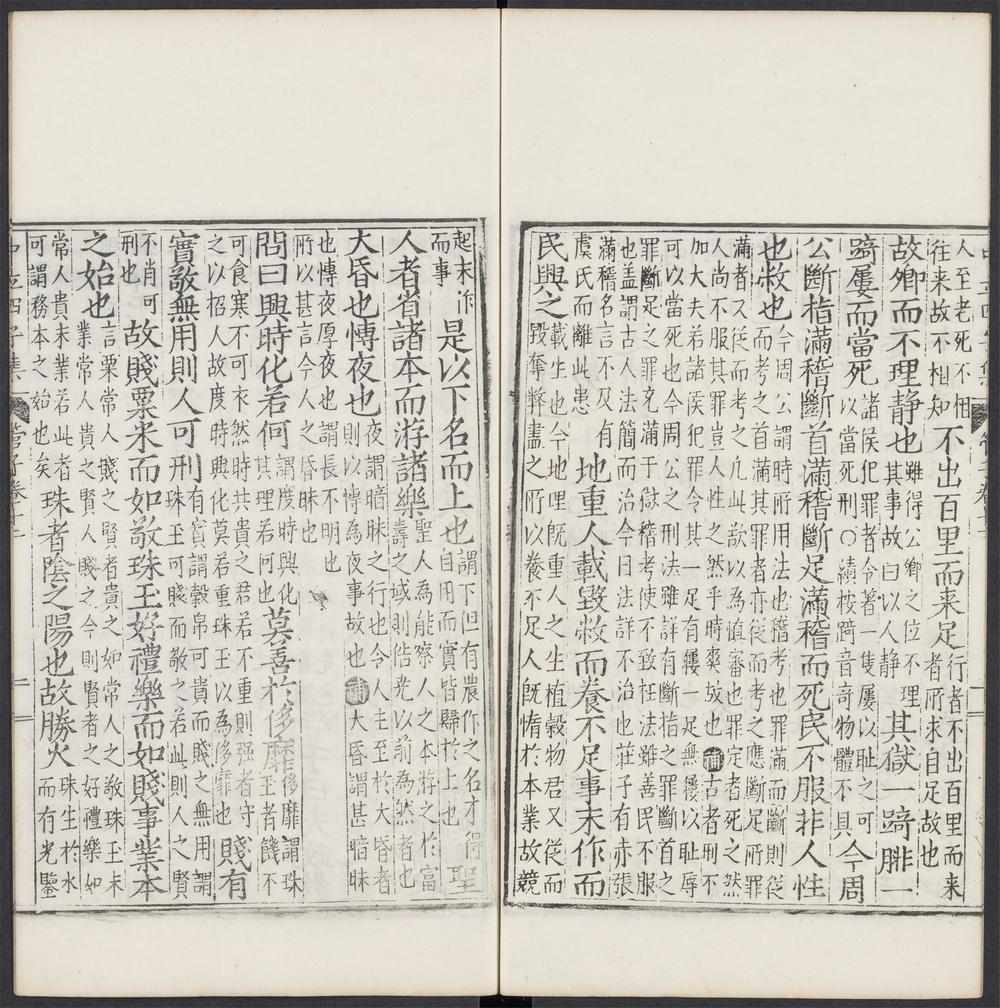 人至老死不相往来故不相知不出百里而来足行者不出百里而来者所求自足故也
故卿而不理静也雖得公卿之位不理其事故曰以人静其獄一踦腓一
踦屨而當死諸侯犯罪者令著一隻屨以耻之可以當死刑○績桉踦音奇物體不具今周
公斷指滿稽斷首滿稽斷足滿稽而死民不服非人性
也敝也今周公謂時所用法也稽考也罪滿而斷則從而考之首滿其罪者亦從而考之應斷足罪
滿者又從而考之凢此欲以為慎審也罪定者死之然人尚不服其罪豈人性之然乎時獘故也補古者刑不
加大夫若諸侯犯罪令其一足有屨一足無屨以耻辱可以當死也今周公之刑法雖詳有斷指之罪斷首之
罪斷足之罪充滿于獄稽考使不致枉法雖善民不服也盖謂古人法簡而治今日法詳不治也莊子有赤張
滿稽名言不及有虞氏而離此患地重人載毀敝而養不足事末作而
民興之載生也今地哩既重人之生植穀物君又從而毀奪弊盡之所以養不足人既惰於本業故競
起末作而事是以下名而上也謂下但有農作之名才得自用而實皆歸於上也聖
人者省諸本而游諸樂聖人為能察人之本游之於富壽之域則以前為然者也
大昏也慱夜也夜謂暗昧之行也令人主至於大昏者則以慱為夜事故也補大昏謂甚暗昧
也慱夜厚夜也謂長不明也所以甚言今人之昏昧也
問曰興時化若何謂度時興化其理若何也莫善於侈靡侈靡謂珠玉者饑不
可食寒不可衣然時共貴之君若不重則强者守之以招人故度時興化莫若重珠玉以為侈靡也賤有
實敬無用則人可刑有實謂穀帛可貴而賤之無用謂珠玉可賤而敬之若此則人之賢
不肖可刑也故賤粟米而如敬珠玉好禮樂而如賤事業本
之始也言粟常人賤之賢者貴之如常人之敬珠玉末業常人貴之賢人賤之今則賢者之好禮樂如
常人貴末業若此者可謂務本之始也矣珠者陰之陽也故勝火珠生於水而有光鑒